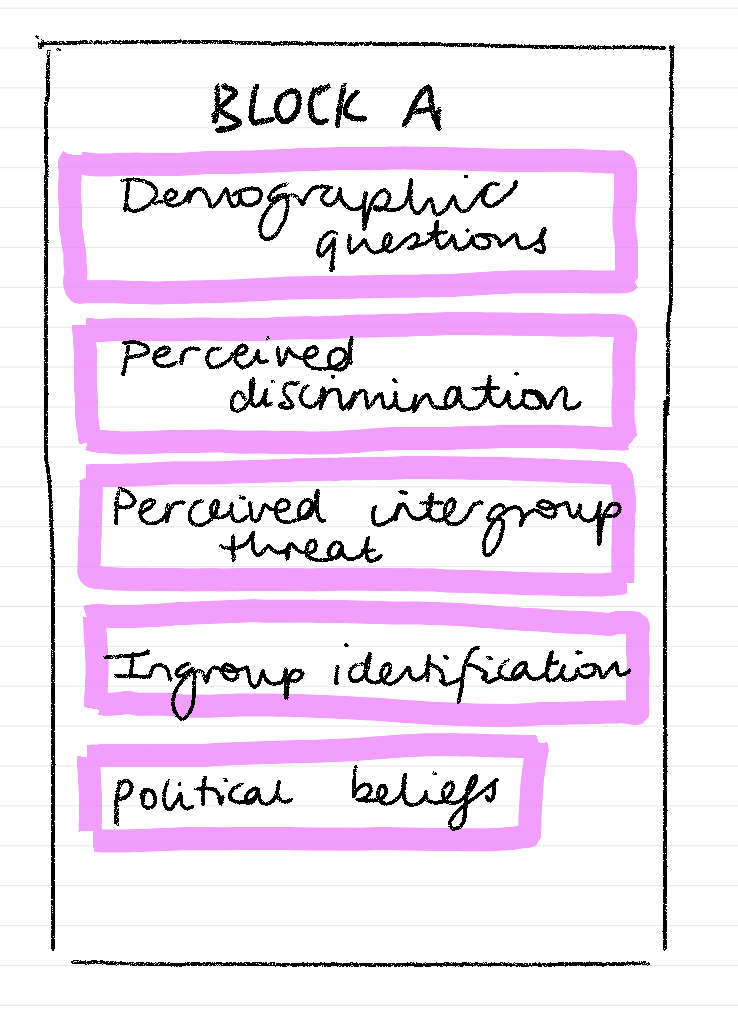 BLOCK A
Demographic
questions
Perceived
discrimination
Perceived intergroup
threat
Ingroup identification
Political beliefs